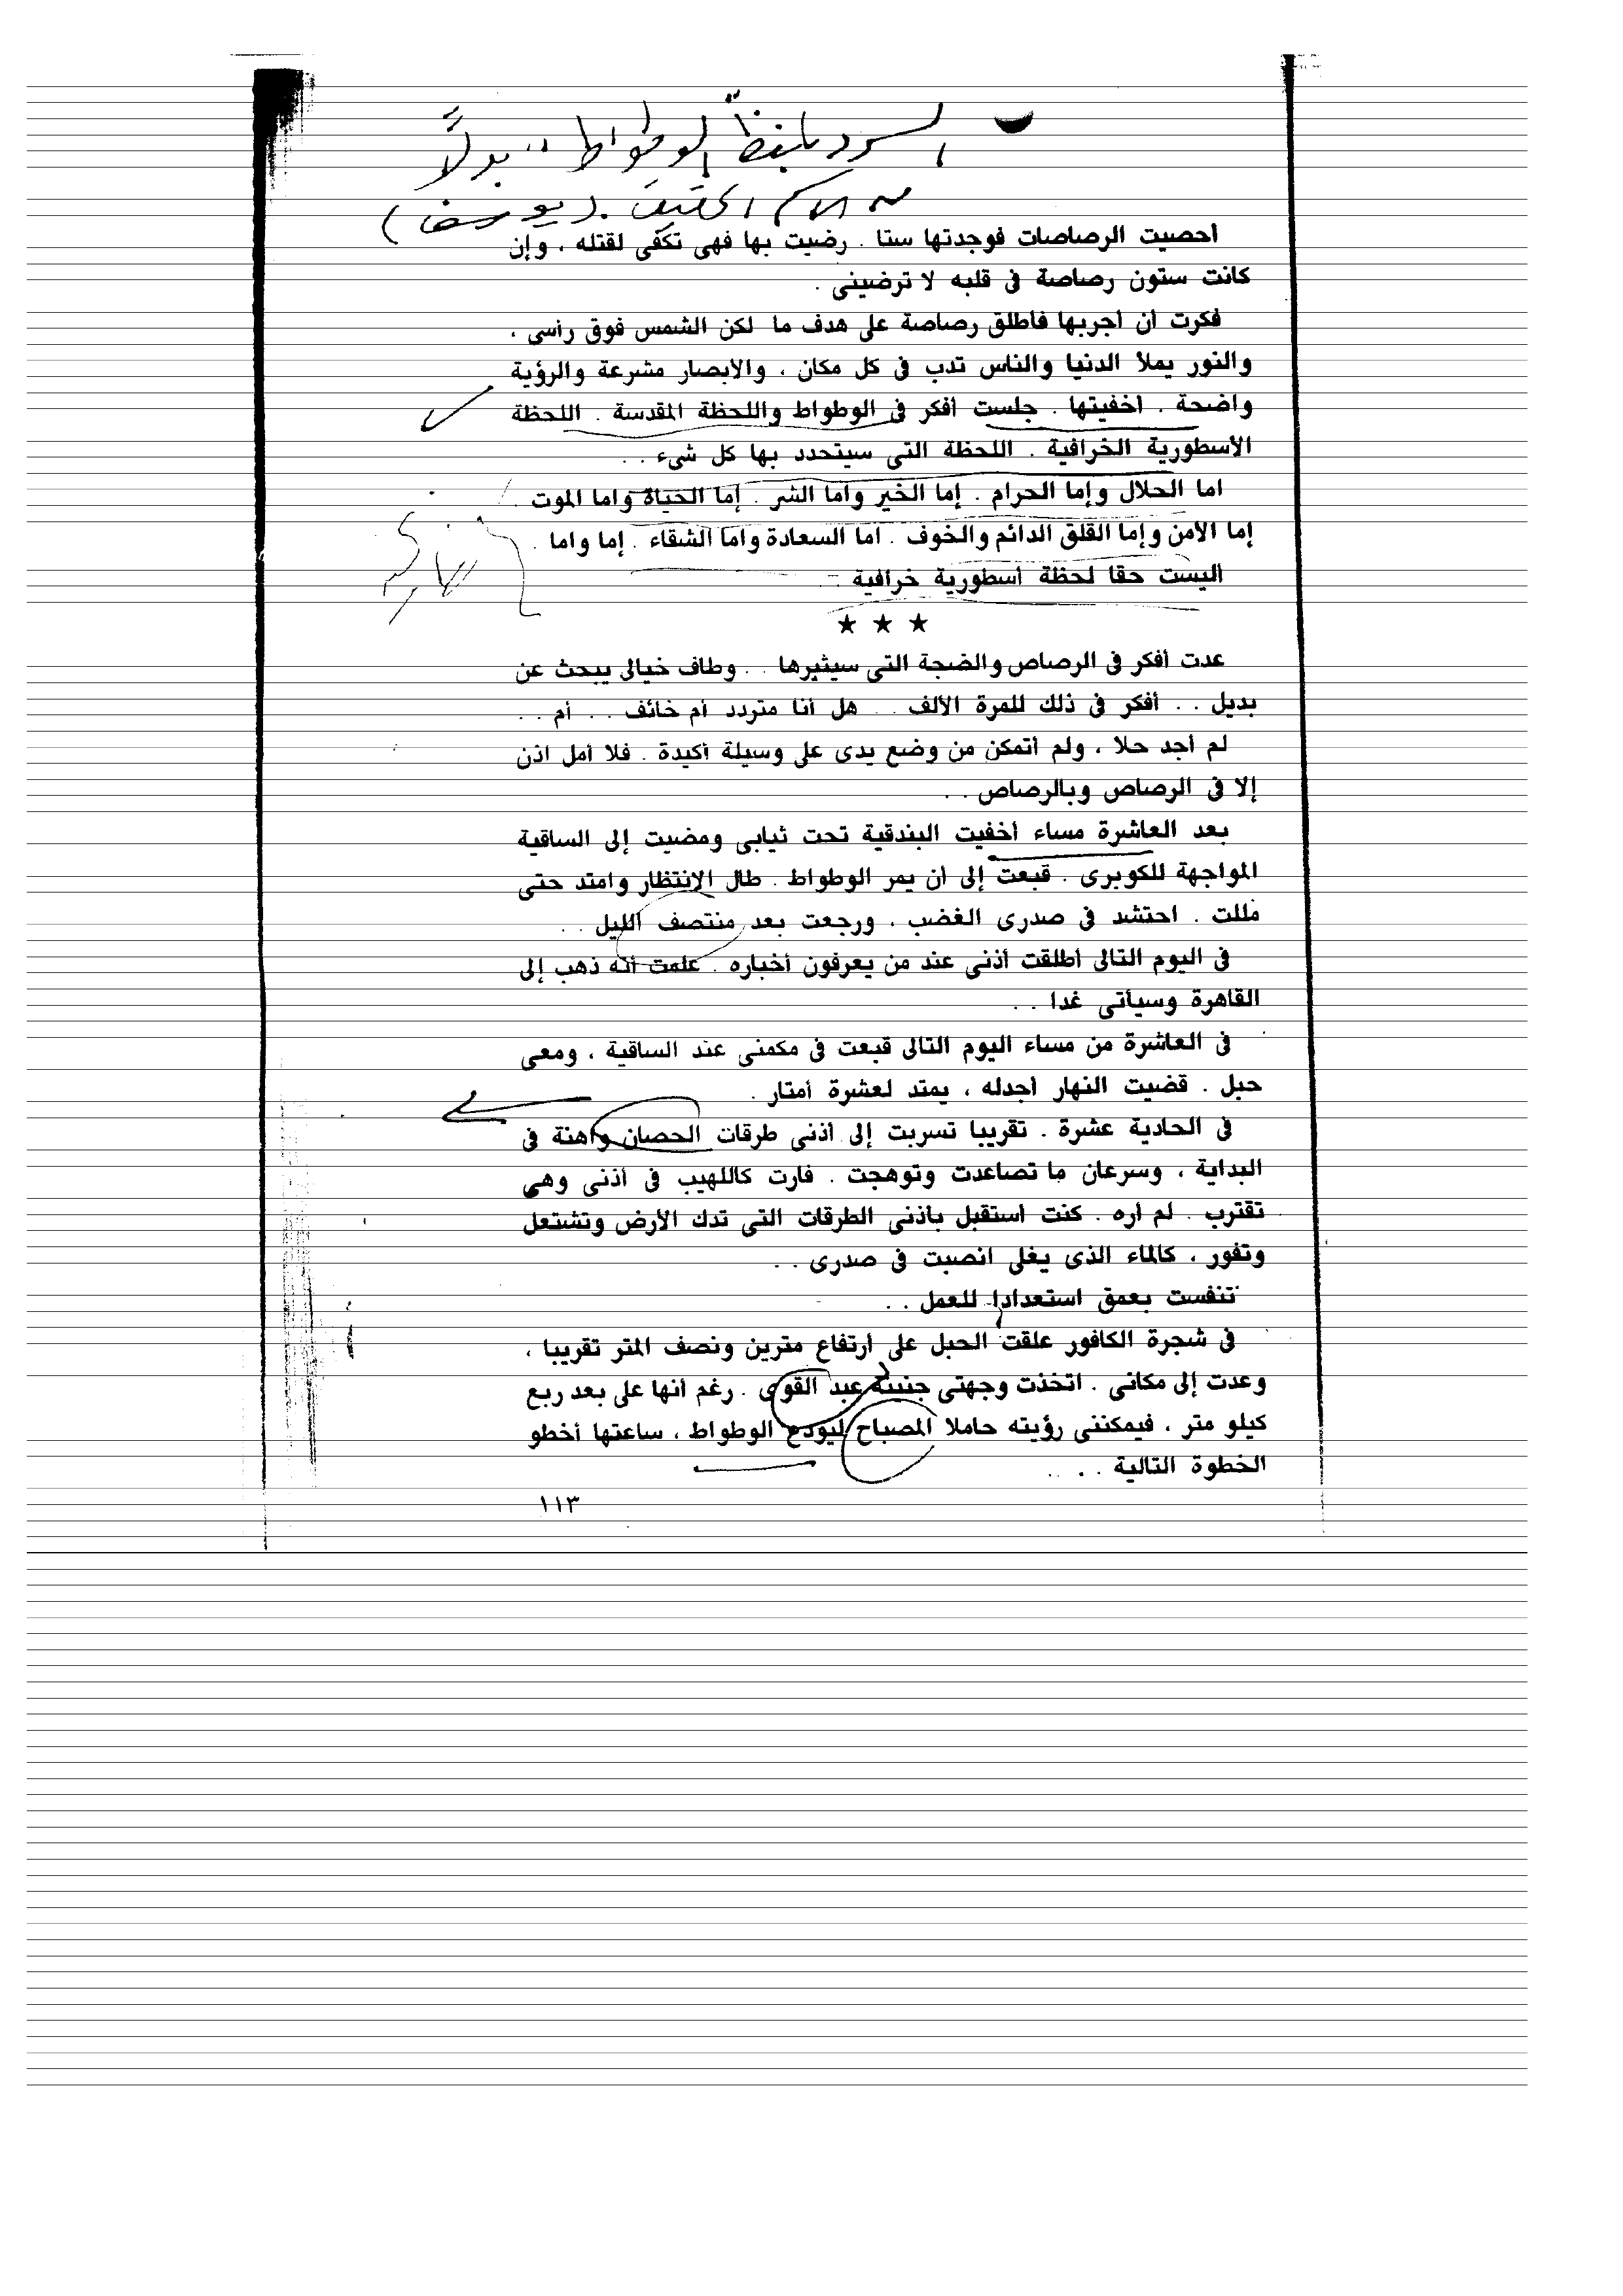 السرد بلفظ الوطواط ,, بدلاً
من الاسم الحقيقى . ( يوسف )
احصيت الرصاصات فوجدتها ستا . رضيت بها فهى تكفى لقتله ، وإن
كانت ستون رصاصة فى قلبه لا ترضينى .
فكرت أن أجربها فأطلق رصاصة على هدف ما لكن الشمس فوق رأسى ،
والنور يملأ الدنيا والناس تدب فى كل مكان ، والابصار مشرعة والرؤية
واضحة . أخفيتها . جلست أفكر فى الوطواط واللحظة المقدسة . اللحظة
الأسطورية الخرافية . اللحظة التى سيتحدد بها كل شىء . .
اما الحلال وإما الحرام . إما الخير واما الشر . إما الحياة واما الموت .
إما الأمن وإما القلق الدائم والخوف . اما السعادة واما الشقاء . إما واما .
اليست حقا لحظة أسطورية خرافية . .
★ ★ ★
عدت أفكر فى الرصاص والضجة التى سيثيرها . . وطاف خيالى يبحث عن
بديل . . أفكر فى ذلك للمرة الألف . . هل أنا متردد أم خائف . . أم . .
لم أجد حلا ، ولم أتمكن من وضع يدى على وسيلة أكيدة . فلا أمل اذن
إلا فى الرصاص وبالرصاص . .
بعد العاشرة مساء أخفيت البندقية تحت ثيابى ومضيت إلى الساقية
المواجهة للكوبرى . قبعت إلى أن يمر الوطواط . طال الانتظار وامتد حتى
مللت . احتشد فى صدرى الغضب ، ورجعت بعد منتصف الليل . .
فى اليوم التالى أطلقت أذنى عند من يعرفون أخباره . علمت أنه ذهب إلى
القاهرة وسيأتى غدا . .
فى العاشرة من مساء اليوم التالى قبعت فى مكمنى عند الساقية ، ومعى
حبل . قضيت النهار أجدله ، يمتد لعشرة أمتار .
فى الحادية عشرة . تقريبا تسربت إلى أذنى طرقات الحصان واهنة فى
البداية ، وسرعان ما تصاعدت وتوهجت . فارت كاللهيب فى أذنى وهى
تقترب . لم أره . كنت استقبل بأذنى الطرقات التى تدك الأرض وتشتعل
وتفور ، كالماء الذى يغلى انصبت فى صدرى . .
تنفست بعمق استعدادا للعمل . .
فى شجرة الكافور علقت الحبل على أرتفاع مترين ونصف المتر تقريبا ،
وعدت إلى مكانى . اتخذت وجهتى جنينة عبد القوى . رغم أنها على بعد ربع
كيلو متر ، فيمكننى رؤيته حاملا المصباح ليودع الوطواط ، ساعتها أخطو
الخطوة التالية . . .
١١٣